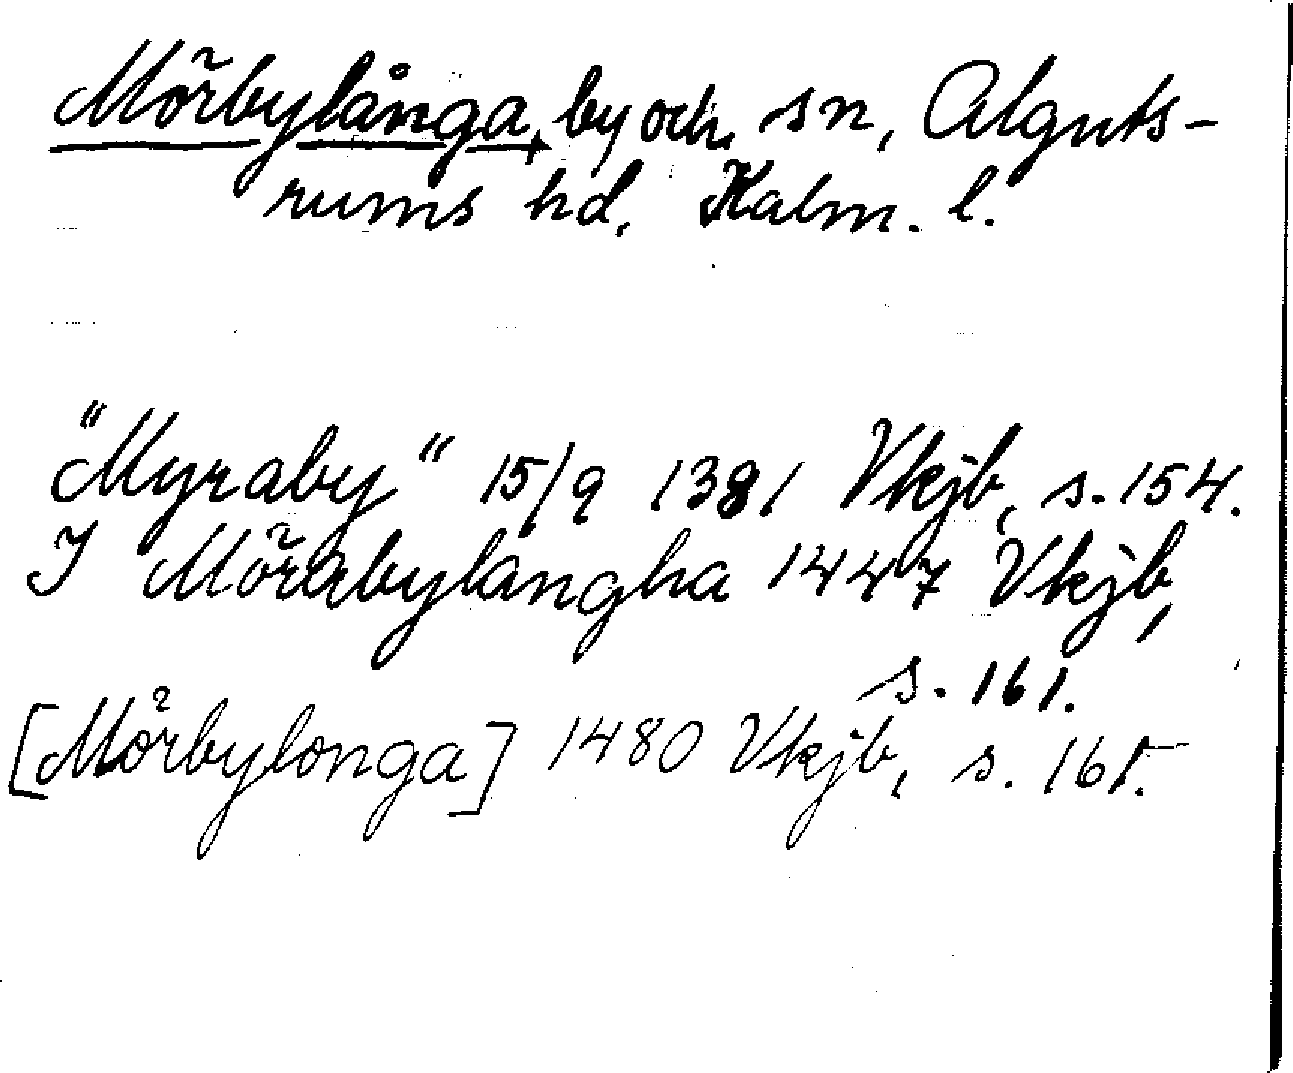 Mörbylånga, by och sn, Alguts-
rums hd. Kalm. l.
"Myraby" 15/9 1381 Vkjb, s. 154.
I Mörabylangha 1447 Vkjb,
s. 161.
[Mörbylonga] 1480 Vkjb, s. 161.